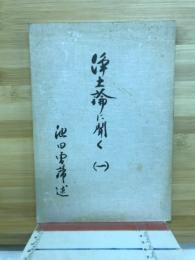 浄土論に聞く
(一)
池田勇諦述